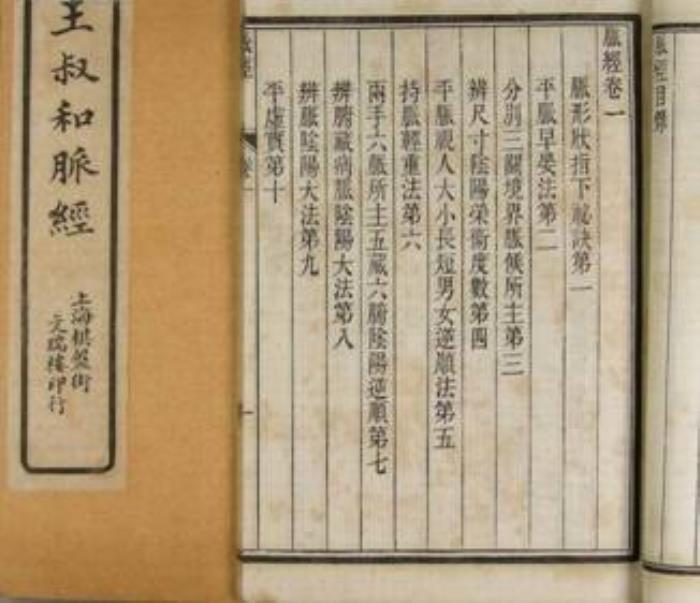 王叔和脈經
上海棋盤街
文瑞樓印行
脈經目錄
脈經卷一
脈形狀指下祕訣第一
平脈早晏法第二
分別三關境界脈候所主第三
辨尺寸陰陽榮衛度數第四
平脈視人大小長短男女逆順法第五
持脈輕重法第六
兩手六脈所主五藏六腑陰陽逆順第七
辨腑藏病脈陰陽大法第八
辨脈陰陽大法第九
平虛實第十